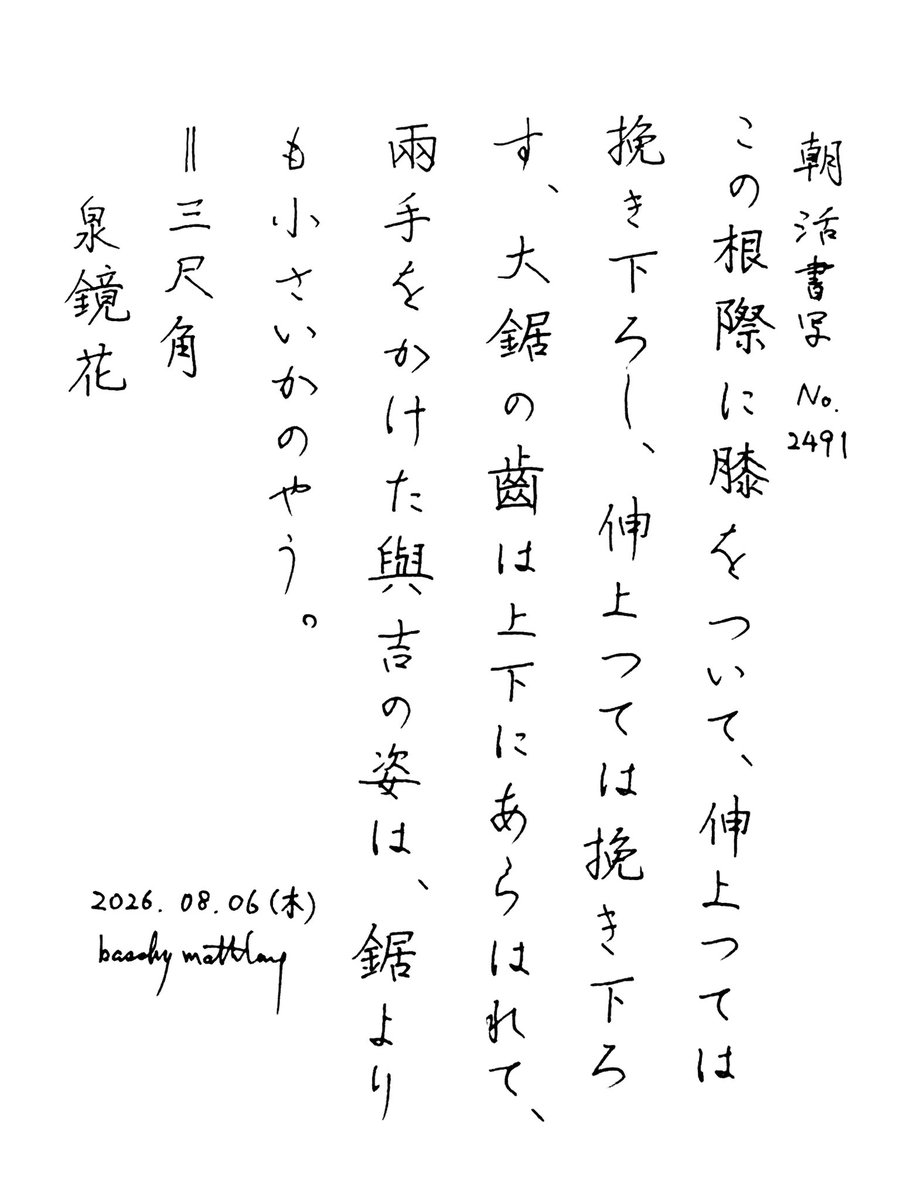 朝活書写 No. 2491
この根際に膝をついて、伸上つては
挽き下ろし、伸上つては挽き下ろ
す、大鋸の齒は上下にあらはれて、
兩手をかけた與吉の姿は、鋸より
も小さいかのやう。
＝三尺角
泉鏡花
2026.08.06(木)